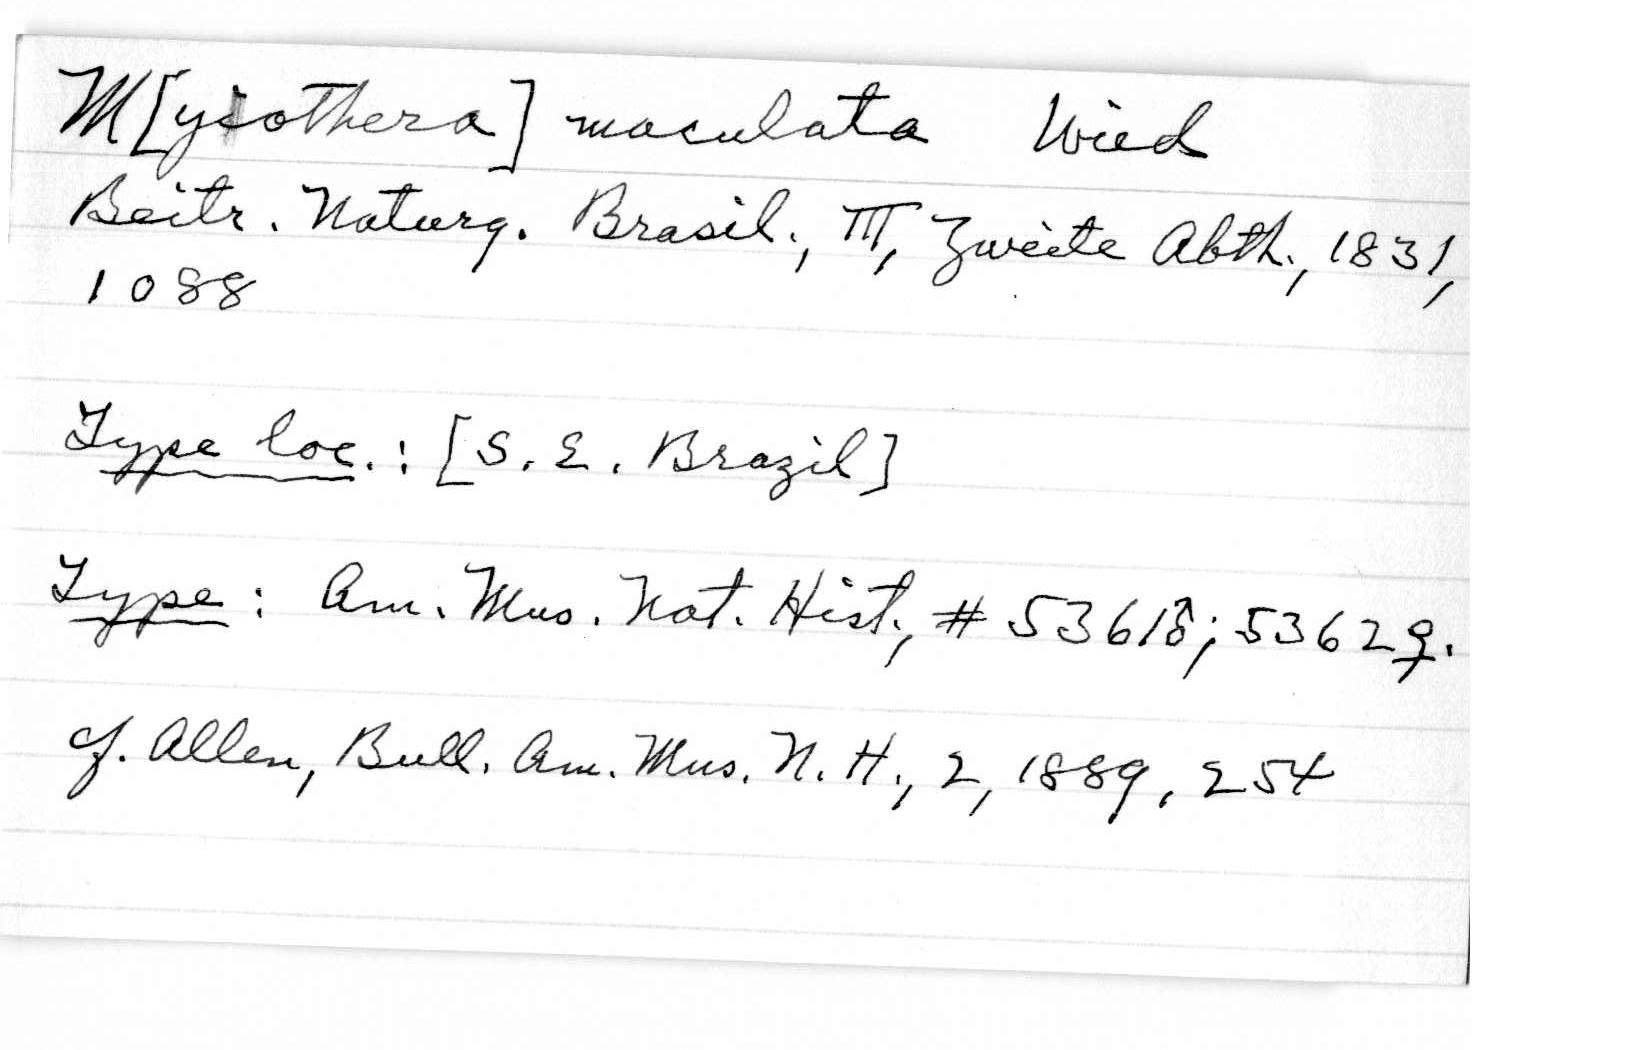 M[yiothera] maculata Wied
Beitr. Naturg. Brasil., III, Zweite Abth., 1831,
1088
Type loc.: [S. E. Brazil]
Type: Am. Mus. Nat. Hist., # 5361♂; 5362♀.
cf. Allen, Bull. Am. Mus. N. H., 2, 1889, 254